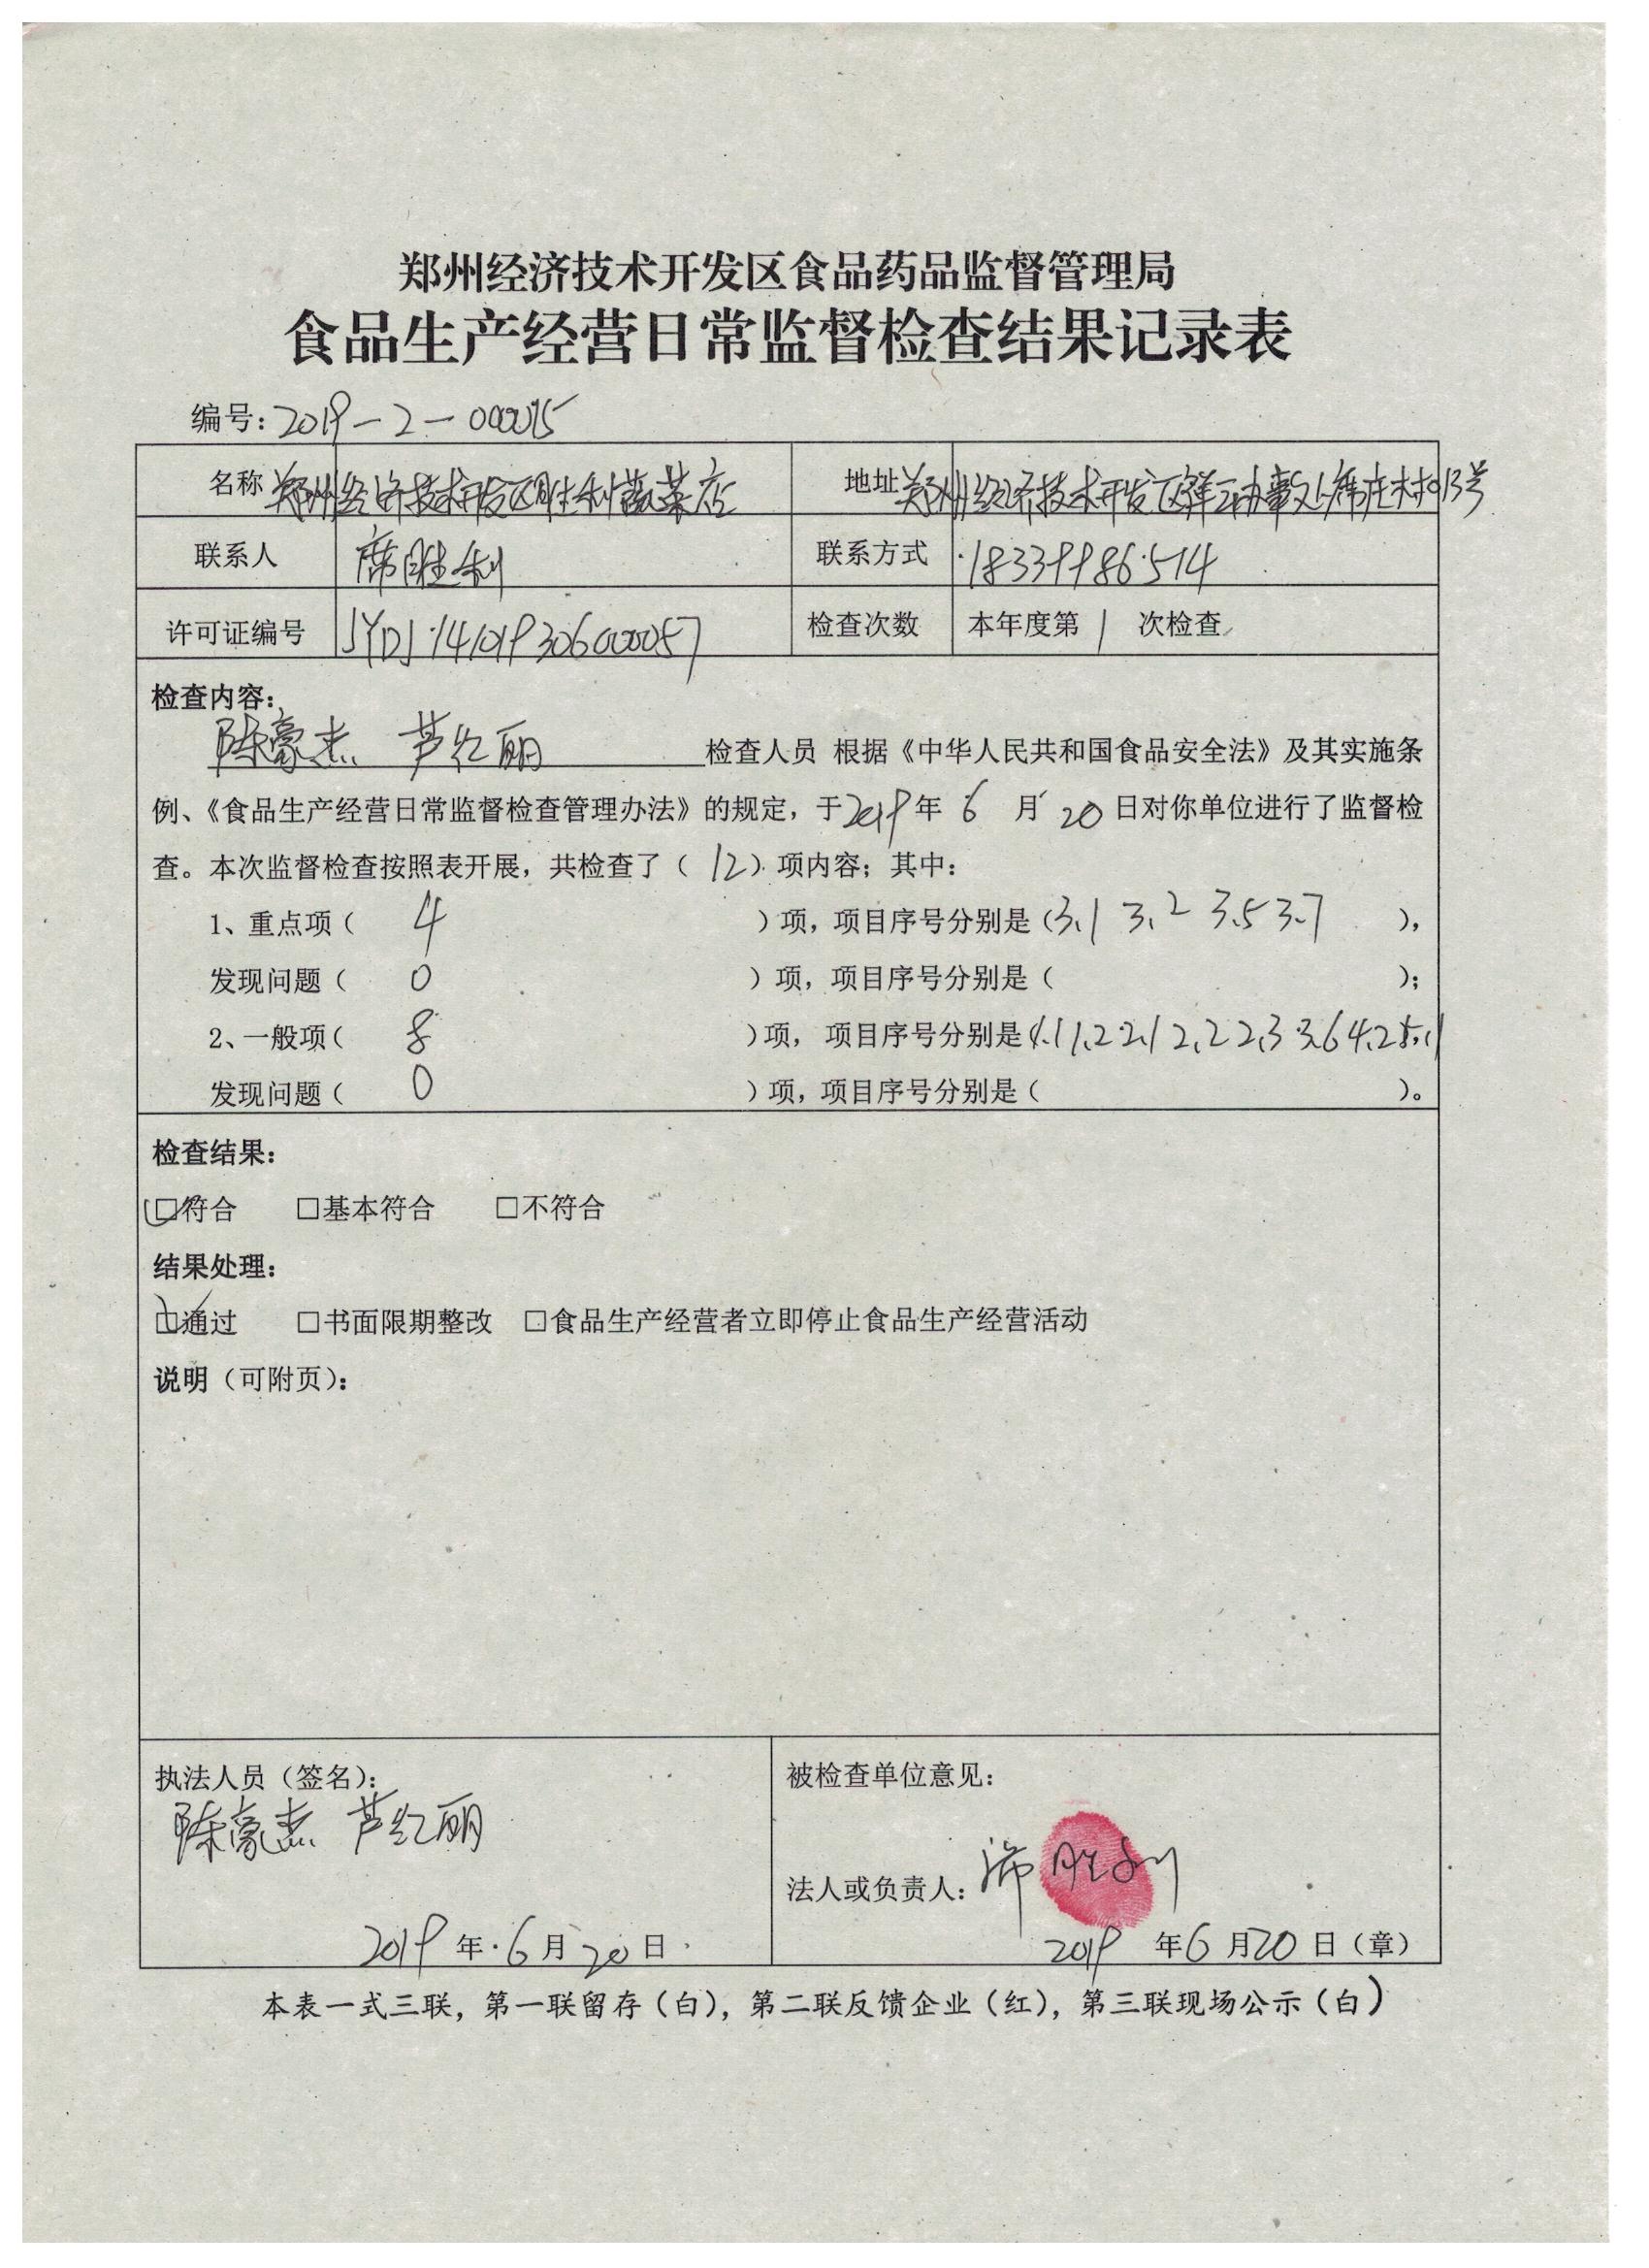 郑州经济技术开发区食品药品监督管理局
食品生产经营日常监督检查结果记录表
编号：2019-2-000015
名称 郑州经济技术开发区胜利蔬菜店 地址 郑州经济技术开发区祥云办事处席庄村013号
联系人 席胜利 联系方式 18339986514
许可证编号 JYDJ14101930600057 检查次数 本年度第1次检查
检查内容：
陈豪杰 芦红丽 检查人员 根据《中华人民共和国食品安全法》及其实施条
例、《食品生产经营日常监督检查管理办法》的规定，于2019年6月20日对你单位进行了监督检
查。本次监督检查按照表开展，共检查了（12）项内容；其中：
1、重点项（4）项，项目序号分别是（3.1 3.2 3.5 3.7），
发现问题（0）项，项目序号分别是（ ）；
2、一般项（8）项，项目序号分别是（1.1 1.2 2.1 2.2 2.3 3.6 4.2 5.1
发现问题（0）项，项目序号分别是（ ）。
检查结果：
☑符合 □基本符合 □不符合
结果处理：
☑通过 □书面限期整改 □食品生产经营者立即停止食品生产经营活动
说明（可附页）：
执法人员（签名）： 被检查单位意见：
陈豪杰 芦红丽
法人或负责人：席胜利
2019年6月20日 2019年6月20日（章）
本表一式三联，第一联留存（白），第二联反馈企业（红），第三联现场公示（白）